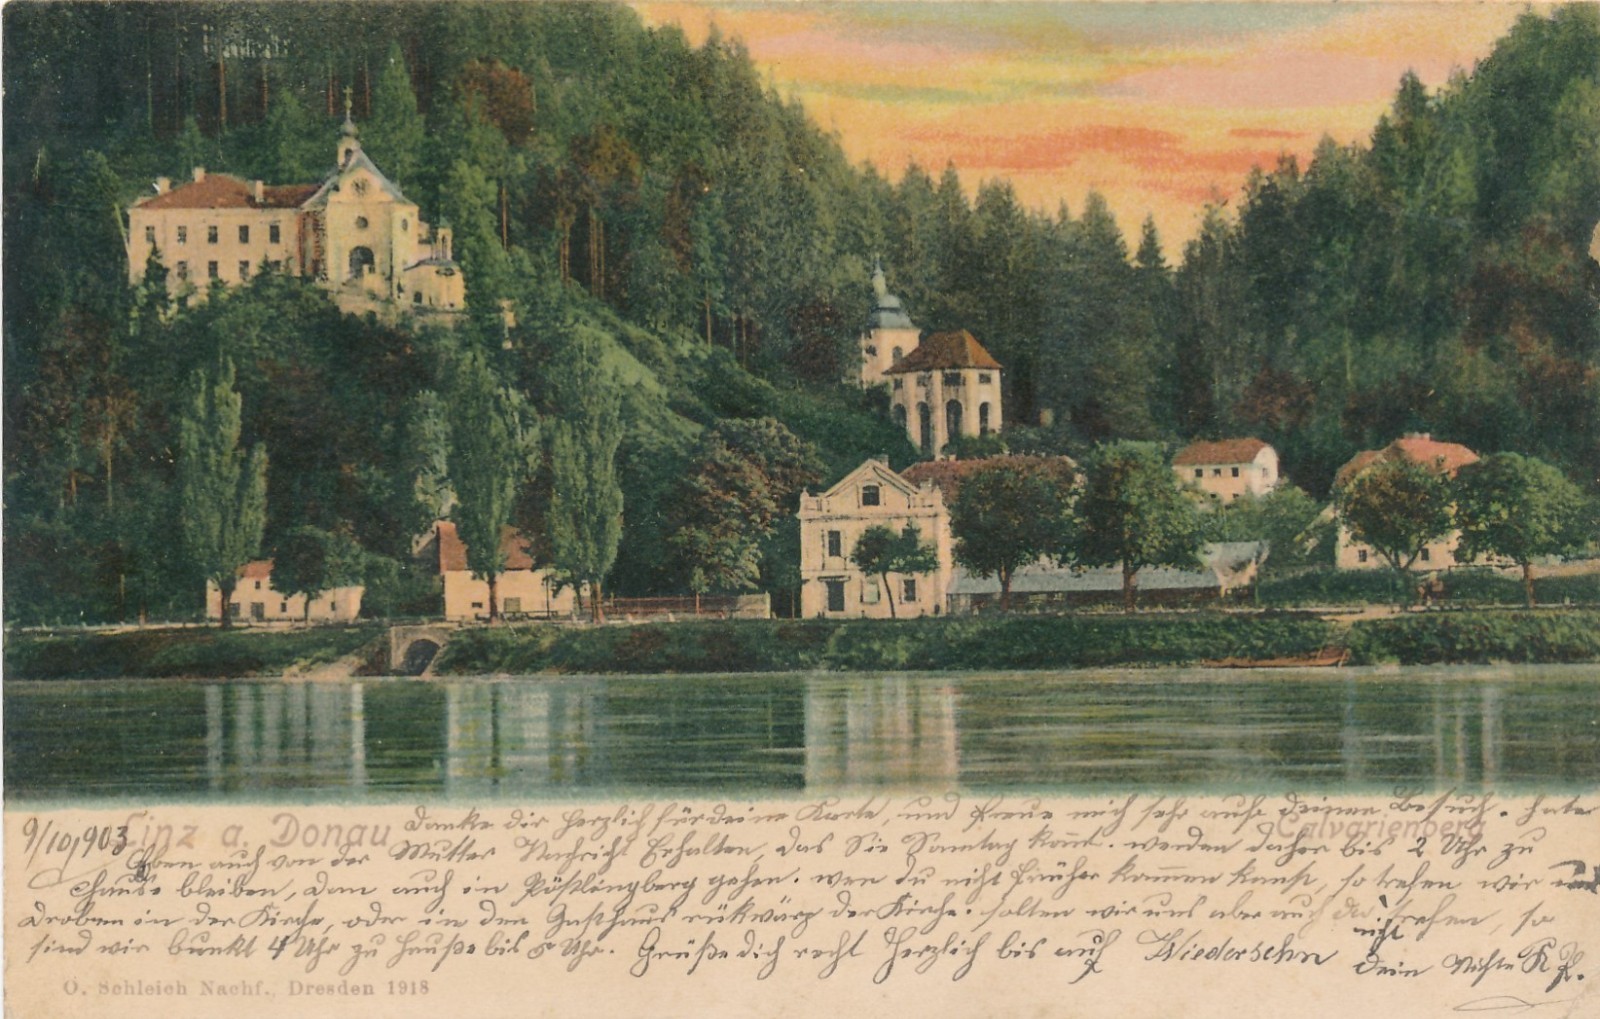 9/10,903 Linz a. Donau Calvarienberg
Danke dir herzlich für deine Karte, und freue mich sehr aufs deinen Besuch. hate
Eben auch von der Mutter Nachricht Erhalten, das Sie Samntag komt. werden daher bis 2 Uhr zu
Hause bleiben, dan auch in Pöstlingberg gehen. wen du nicht früher kommen kanst, so trefen wir uns
droben in der Kirche, oder in den Gasthaus rükwärz der Kirche. solten wir uns aber auch da nicht trefen, so
sind wir bunkt 4 Uhr zu Hauße bis 5 Uhr. Grüße dich recht herzlich bis auf Wiedersehn dein Nichte
O. Schleich Nachf., Dresden 1918